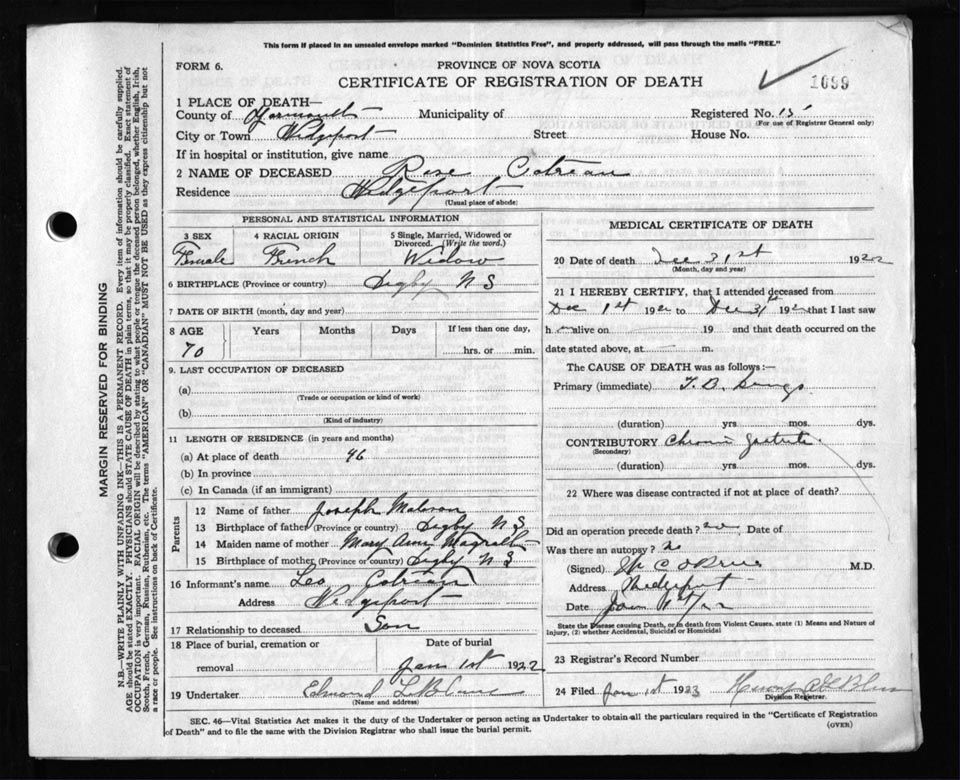 This form if placed in an unsealed envelope marked "Dominion Statistics Free", and properly addressed, will pass through the mails "FREE."
FORM 6.
PROVINCE OF NOVA SCOTIA
CERTIFICATE OF REGISTRATION OF DEATH
1099
1 PLACE OF DEATH—
County of Yarmouth Municipality of Registered No. 15
(For use of Registrar General only)
City or Town Wedgeport Street House No.
If in hospital or institution, give name
2 NAME OF DECEASED Rose Cotreau
Residence Wedgeport
(Usual place of abode)
PERSONAL AND STATISTICAL INFORMATION
3 SEX 4 RACIAL ORIGIN 5 Single, Married, Widowed or Divorced. (Write the word.)
Female French Widow
6 BIRTHPLACE (Province or country) Digby N S
7 DATE OF BIRTH (month, day and year)
8 AGE Years Months Days If less than one day,
70 hrs. or min.
9. LAST OCCUPATION OF DECEASED
(a)
(Trade or occupation or kind of work)
(b)
(Kind of industry)
11 LENGTH OF RESIDENCE (in years and months)
(a) At place of death 46
(b) In province
(c) In Canada (if an immigrant)
Parents
12 Name of father Joseph
13 Birthplace of father (Province or country) Digby N S
14 Maiden name of mother Mary Ann
15 Birthplace of mother (Province or country) Digby N S
16 Informant's name Leo Cotreau
Address Wedgeport
17 Relationship to deceased Son
18 Place of burial, cremation or removal Date of burial
Jan 1st 1922
19 Undertaker Edmond LeBlanc
(Name and address)
MEDICAL CERTIFICATE OF DEATH
20 Date of death Dec 31st 1922
(Month, day and year)
21 I HEREBY CERTIFY, that I attended deceased from
Dec 1st 192 to Dec 31st 192 that I last saw
h alive on 19 and that death occurred on the
date stated above, at m.
The CAUSE OF DEATH was as follows:—
Primary (immediate) T. B. Lungs
(duration) yrs. mos. dys.
CONTRIBUTORY Chronic
(Secondary)
(duration) yrs. mos. dys.
22 Where was disease contracted if not at place of death?
Did an operation precede death? no Date of
Was there an autopsy? no
(Signed) M.D.
Address Wedgeport
Date Jan
State the Disease causing Death, or in death from Violent Causes, state (1) Means and Nature of Injury, (2) whether Accidental, Suicidal or Homicidal
23 Registrar's Record Number
24 Filed Jan 1st 1923
Division Registrar.
SEC. 46—Vital Statistics Act makes it the duty of the Undertaker or person acting as Undertaker to obtain all the particulars required in the "Certificate of Registration
of Death" and to file the same with the Division Registrar who shall issue the burial permit.
(OVER)
MARGIN RESERVED FOR BINDING
N.B.—WRITE PLAINLY WITH UNFADING INK—THIS IS A PERMANENT RECORD. Every item of information should be carefully supplied.
AGE should be stated EXACTLY. PHYSICIANS should STATE CAUSE OF DEATH in plain terms, so that it may be properly classified. Exact statement of
OCCUPATION is very important. RACIAL ORIGIN will be described by stating to what people or tongue the deceased person belonged, whether English, Irish,
Scotch, French, German, Russian, Ruthenian, etc. The terms "AMERICAN" OR "CANADIAN" MUST NOT BE USED as they express citizenship but not
a race or people. See instructions on back of Certificate.